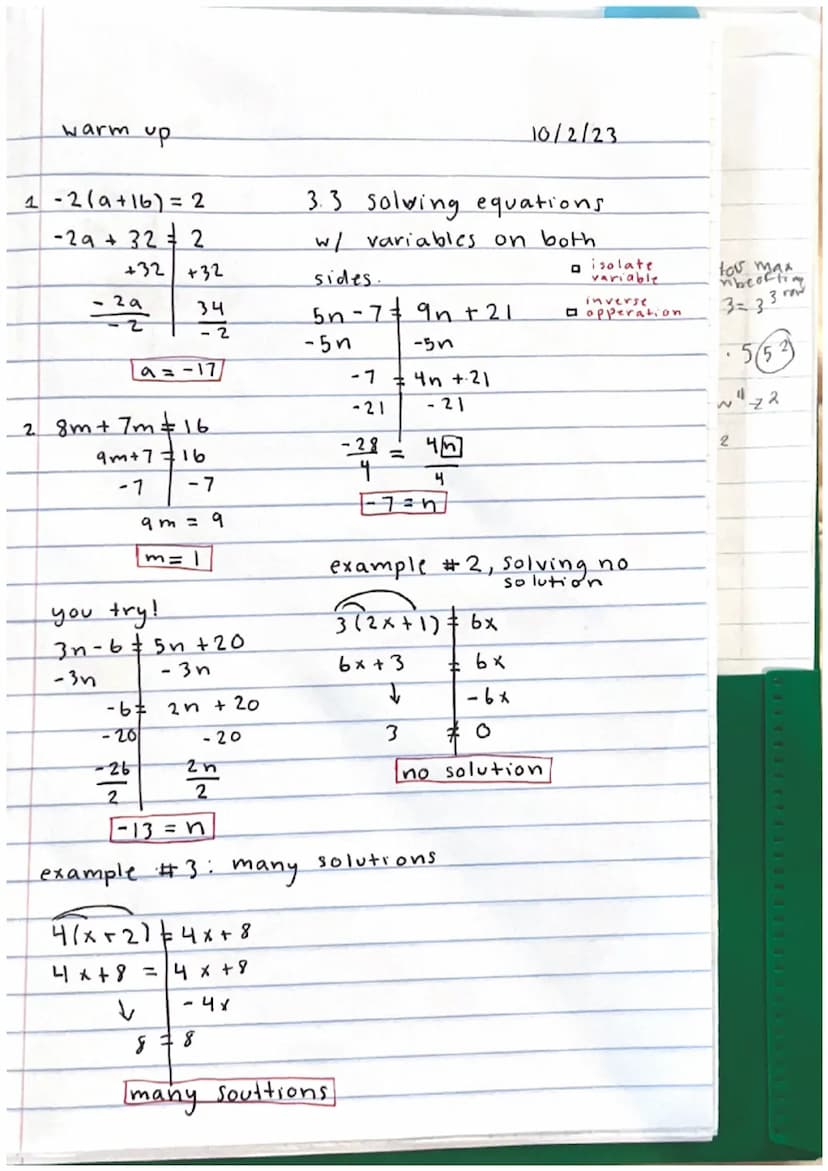 warm up
10/2/23
1 -2(a+16) = 2
-2a + 32 = 2
+32 +32
-2a 34
-2 -2
a = -17
2 8m + 7m = 16
9m+7 = 16
-7 -7
9m = 9
m = 1
you try!
3n-6 = 5n +20
-3n -3n
-6 = 2n + 20
-20 -20
-26 2n
2 2
-13 = n
3.3 solving equations
w/ variables on both
sides.
isolate
variable
inverse
opperation
5n-7 = 9n + 21
-5n -5n
-7 = 4n +21
-21 -21
-28 = 4n
4 4
-7 = n
example #2, solving no
solution
3(2x+1) = 6x
6x+3 = 6x
↓ -6x
3 ≠ 0
no solution
example #3: many solutions
4(x+2) = 4x+8
4x+8 = 4x+8
↓ -4x
8 = 8
many souttions
max
3=3³
. 5 5²
2